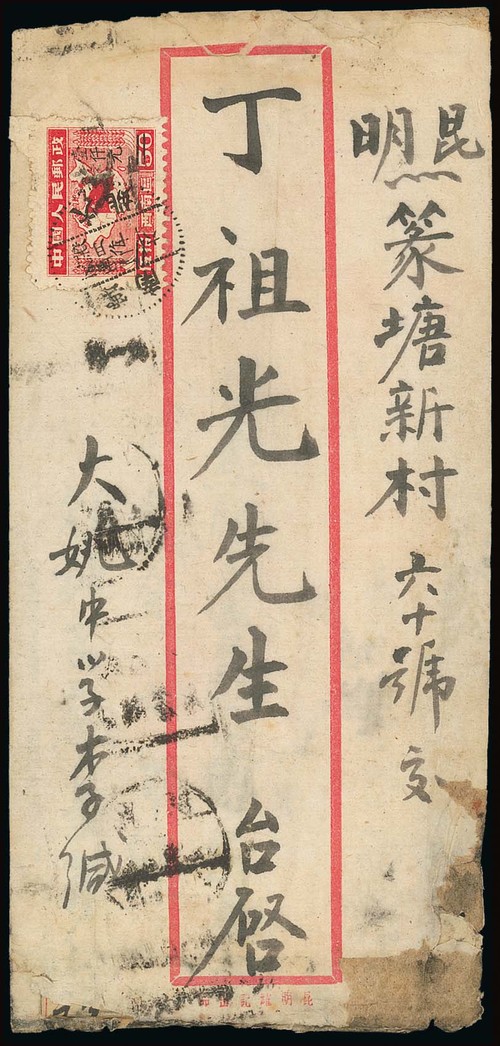 昆明篆塘新村六十號交
丁祖光先生台啓
大姚中學李緘
中國人民郵政